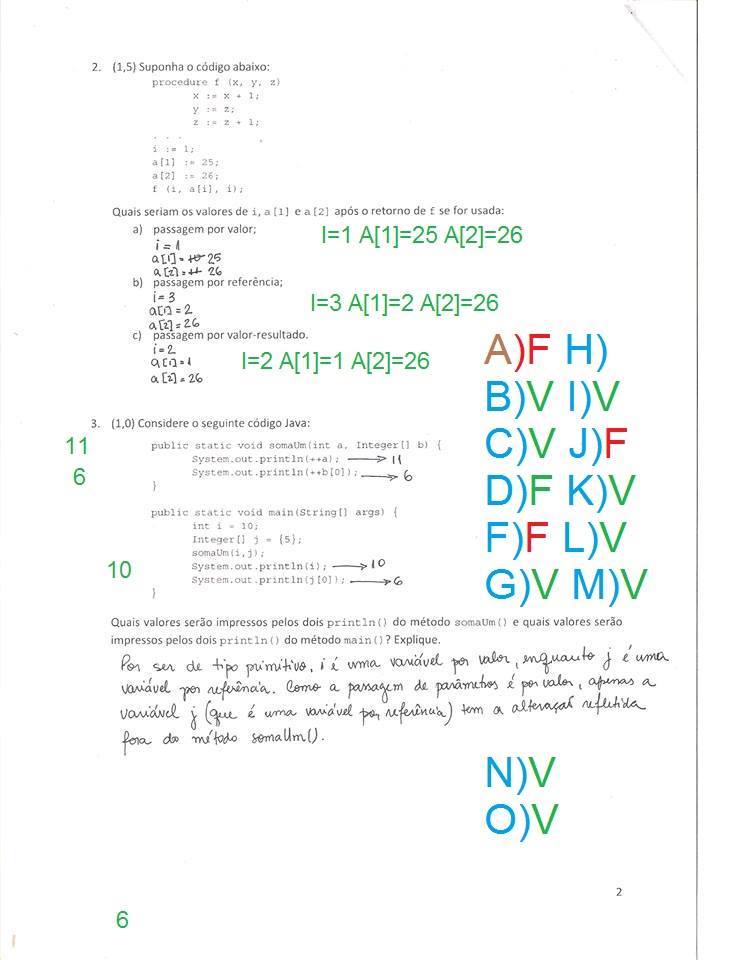 2. (1,5) Suponha o código abaixo:
procedure f (x, y, z)
x := x + 1;
y := z;
z := z + 1;
. . .
i := 1;
a[1] := 25;
a[2] := 26;
f (i, a[i], i);
Quais seriam os valores de i, a[1] e a[2] após o retorno de f se for usada:
a) passagem por valor;
I=1 A[1]=25 A[2]=26
i = 1
a[1] = 25
a[2] = 26
b) passagem por referência;
i = 3
I=3 A[1]=2 A[2]=26
a[1] = 2
a[2] = 26
c) passagem por valor-resultado.
i = 2
I=2 A[1]=1 A[2]=26
a[1] = 1
a[2] = 26
A)F H)
B)V I)V
C)V J)F
D)F K)V
F)F L)V
G)V M)V
3. (1,0) Considere o seguinte código Java:
public static void somaUm(int a, Integer[] b) {
11
System.out.println(++a); → 11
6
System.out.println(++b[0]); → 6
}
public static void main(String[] args) {
int i = 10;
Integer[] j = {5};
somaUm(i,j);
10
System.out.println(i); → 10
System.out.println(j[0]); → 6
}
Quais valores serão impressos pelos dois println() do método somaUm() e quais valores serão
impressos pelos dois println() do método main()? Explique.
Por ser de tipo primitivo, i é uma variável por valor, enquanto j é uma
variável por referência. Como a passagem de parâmetros é por valor, apenas a
variável j (que é uma variável por referência) tem a alteração refletida
fora do método somaUm().
N)V
O)V
2
6